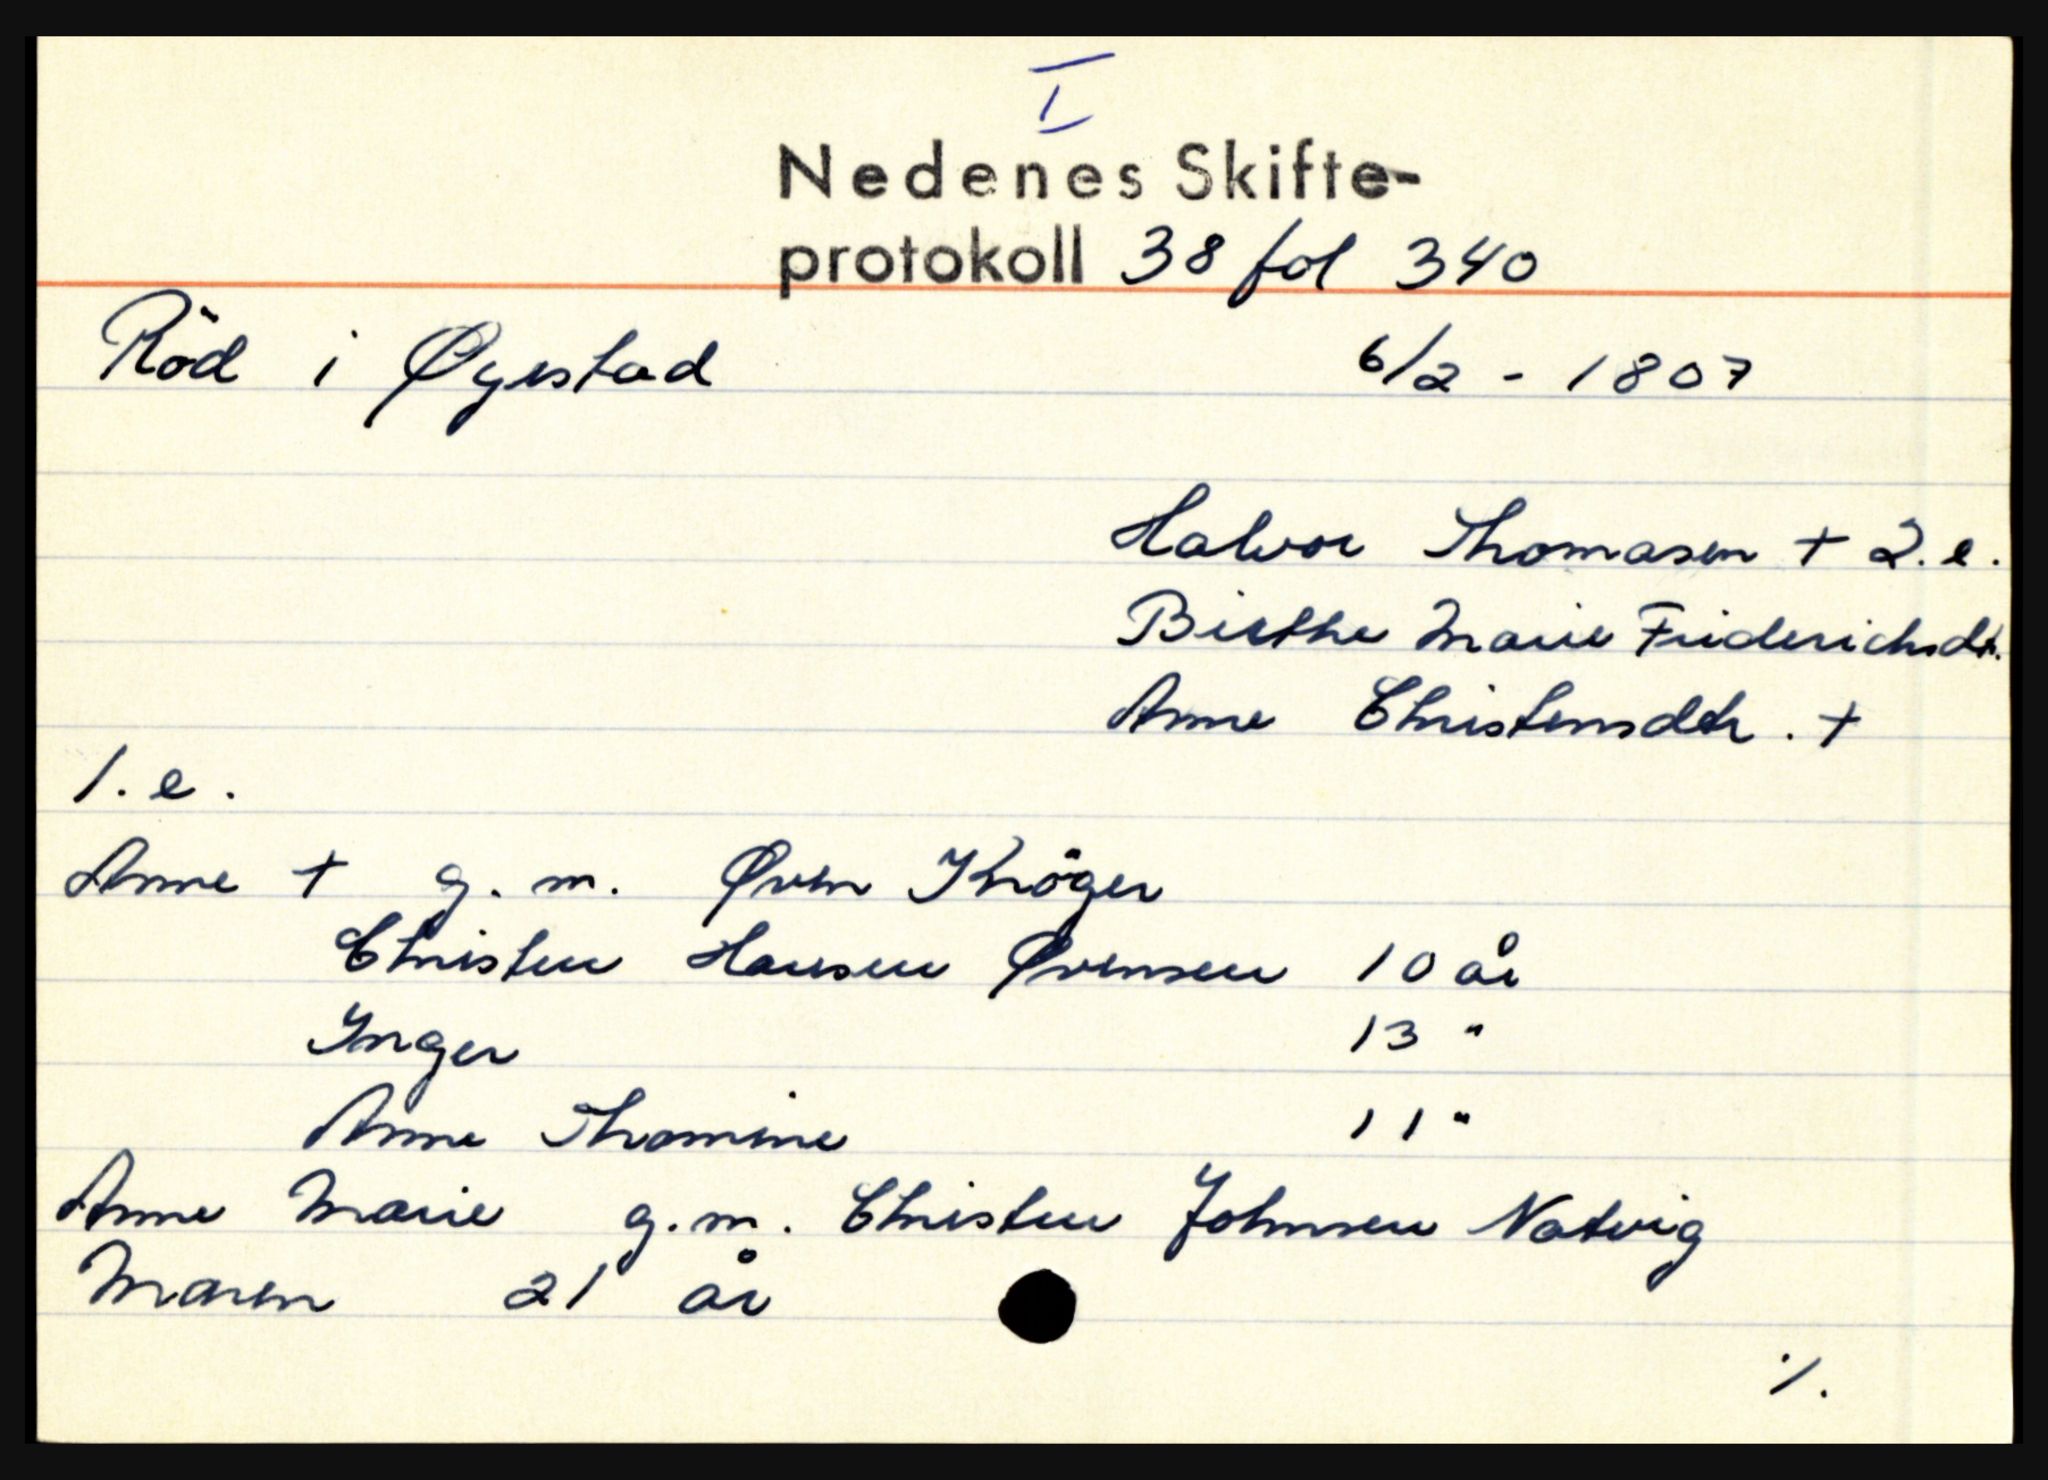 I
Nedenes Skifte-
protokoll 38 fol 340
Röd i Øyestad 6/2 - 1807
Halvor Thomasen + 2. e.
Birthe Marie Friderichsdt.
Anne Christensdtr. +
1. e.
Anne + g. m. Øven Kröger
Christen Hansen Øvensen 10 år
Inger 13 "
Anne Thomine 11 "
Anne Marie g. m. Christen Johnsen Natvig
Maren 21 år
./.